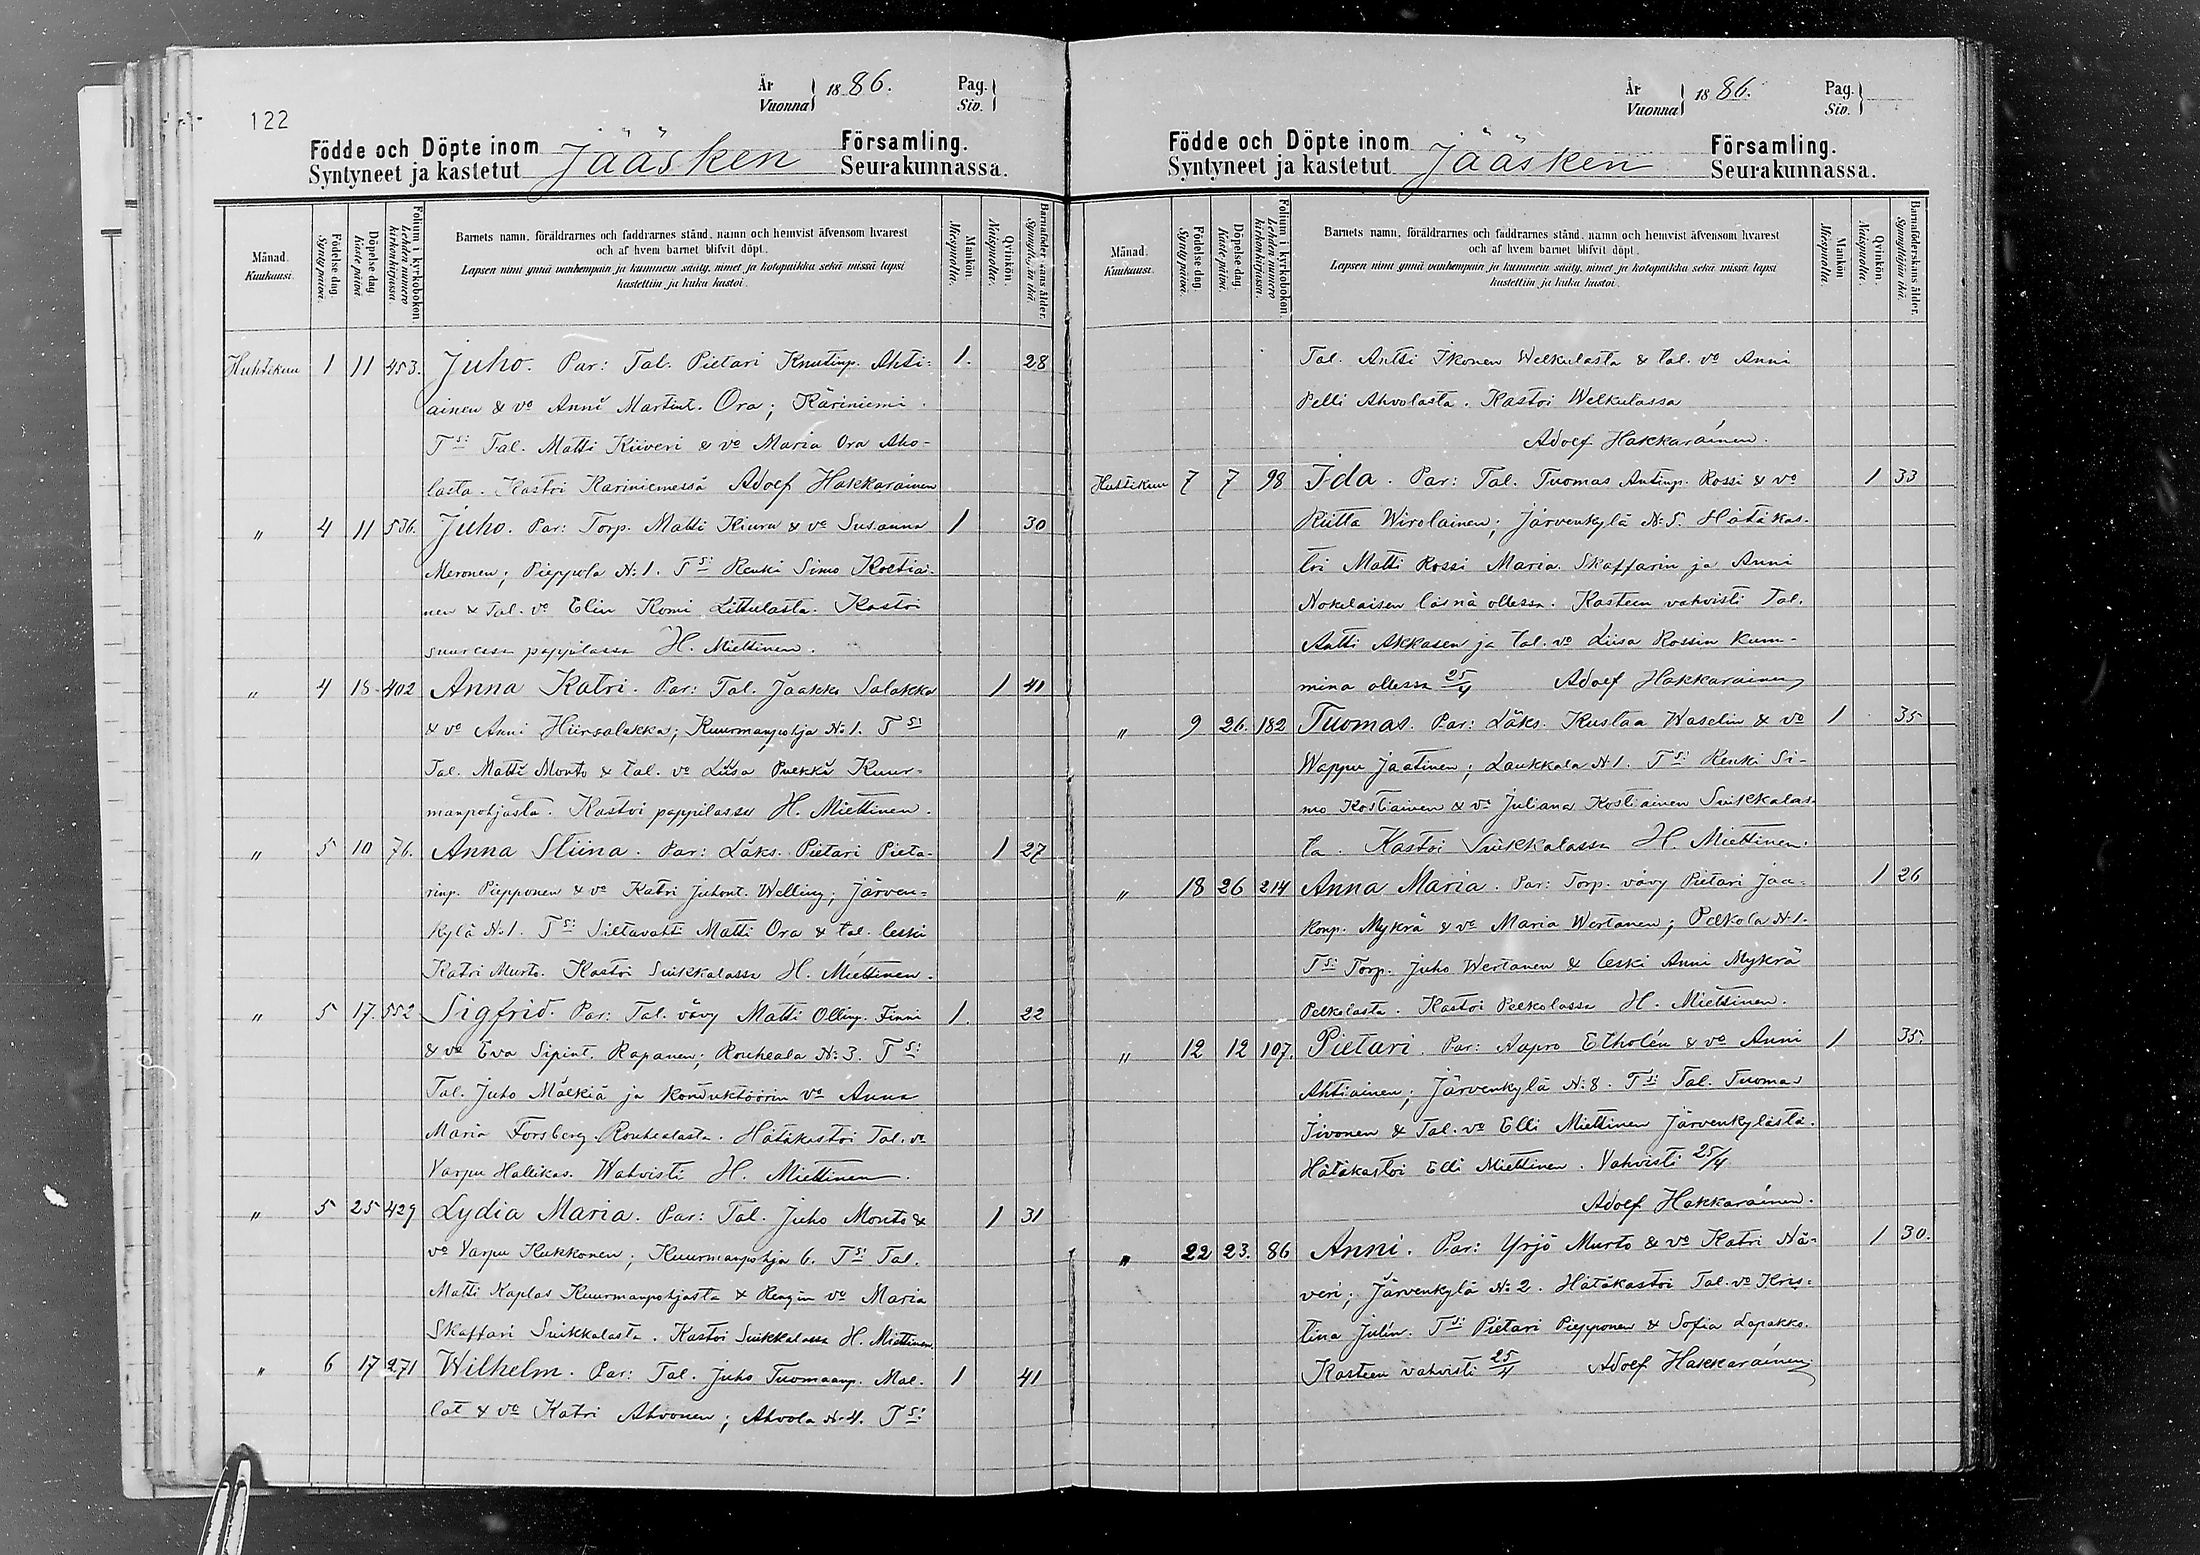 122
År Vuonna } 1886. Pag. Siv. }
Födde och Döpte inom Jääsken Församling.
Syntyneet ja kastetut Seurakunnassa.
Månad. Kuukausi.
Födelse dag. Synty päivä.
Döpelse dag. Kaste päivä.
Folium i kyrkoboken. Lehden numero kirkonkirjassa.
Barnets namn, föräldrarnes och faddrarnes stånd, namn och hemvist äfvensom hvarest
och af hvem barnet blifvit döpt.
Lapsen nimi ynnä vanhempain ja kummein sääty, nimet ja kotopaikka sekä missä lapsi
kastettiin ja kuka kastoi.
Mankön. Miespuolta.
Qvinkön. Naispuolta.
Barnaföderskans ålder. Synnyttäjän ikä.
Huhtikuu 1 11 453. Juho. Par: Tal. Pietari Knutinp. Ahti- 1. 28
ainen & vo Anni Martint. Ora; Käriniemi.
Tsi Tal. Matti Kiiveri & vo Maria Ora Aho-
lasta. Kastoi Kariniemessä Adolf Hakkarainen
" 4 11 536. Juho. Par: Torp. Matti Kiuru & vo Susanna 1 30
Meronen; Pieppola N:1. Tsi Renki Simo Kostiai-
nen & Tal. vo Elin Komi Littulasta. Kastoi
suuressa pappilassa H. Miettinen.
" 4 18 402 Anna Katri. Par: Tal. Jaakko Salakka 1 41
& vo Anni Hiirsalakka; Kuurmanpohja No 1. Tsi
Tal. Matti Monto & tal. vo Liisa Pulkki Kuur-
manpohjasta. Kastoi pappilassa H. Miettinen.
" 5 10 76. Anna Stiina. Par: Läks. Pietari Pieta- 1 27
rinp. Piepponen & vo Katri Juhont. Welling; Järven-
kylä No 1. Tsi Siltavahti Matti Ora & tal. leski
Katri Murto. Kastoi Suikkalassa H. Miettinen.
" 5 17. 552 Sigfrid. Par: Tal. vävy Matti Ollinp. Finni 1. 22
& vo Eva Sipint. Rapanen; Rouheala No: 3. Tsi
Tal. Juho Mälkiä ja Konduktöörin vo Anna
Maria Forsberg Rouhealasta. Hätäkastoi Tal. vo
Varpu Hallikas. Wahvisti H. Miettinen.
" 5 25 429 Lydia Maria. Par: Tal. Juho Monto & 1 31
vo Varpu Kukkonen; Kuurmanpohja 6. Tsi Tal.
Matti Kaplas Kuurmanpohjasta & Rengin vo Maria
Skaffari Suikkalasta. Kastoi Suikkalassa H. Miettinen.
" 6 17 271 Wilhelm. Par: Tal. Juho Tuomaanp. Mal- 1 41
lat & vo Katri Ahvonen; Ahvola N:4. Tsi
År Vuonna } 1886. Pag. Siv. }
Födde och Döpte inom Jääsken Församling.
Syntyneet ja kastetut Seurakunnassa.
Månad. Kuukausi.
Födelse dag. Synty päivä.
Döpelse dag. Kaste päivä.
Folium i kyrkoboken. Lehden numero kirkonkirjassa.
Barnets namn, föräldrarnes och faddrarnes stånd, namn och hemvist äfvensom hvarest
och af hvem barnet blifvit döpt.
Lapsen nimi ynnä vanhempain ja kummein sääty, nimet ja kotopaikka sekä missä lapsi
kastettiin ja kuka kastoi.
Mankön Miespuolta.
Qvinkön. Naispuolta.
Barnaföderskans ålder. Synnyttäjän ikä.
Tal. Antti Ikonen Welkulasta & tal. vo Anni
Pelli Ahvolasta. Kastoi Welkulassa
Adolf Hakkarainen.
Huhtikuu 7 7 98 Ida. Par: Tal. Tuomas Antinp. Rossi & vo 1 33
Riitta Wirolainen; Järvenkylä N:5. Hätäkas-
toi Matti Rossi Maria Skaffarin ja Anni
Nokelaisen läsnä ollessa. Kasteen vahvisti Tal.
Antti Akkasen ja tal. vo Liisa Rossin kum-
mina ollessa 25/4 Adolf Hakkarainen
" 9 26. 182 Tuomas. Par: Läks. Kustaa Waselin & vo 1 35
Wappu Jaatinen; Laukkala N:1. Tsi Renki Si-
mo Kostiainen & vo Juliana Kostiainen Suikkalas-
ta. Kastoi Suikkalassa H. Miettinen.
" 18 26 214 Anna Maria. Par: Torp. vävy Pietari Jaa- 1 26
konp. Mykrä & vo Maria Wertanen; Pelkola N:1.
Tsi Torp. Juho Wertanen & leski Anni Mykrä
Pelkolasta. Kastoi Pelkolassa H. Miettinen.
" 12 12 107. Pietari. Par: Aapro Etholén & vo Anni 1 35.
Ahtiainen; Järvenkylä N:8. Tsi Tal. Tuomas
Iivonen & Tal. vo Elli Miettinen Järvenkylästä.
Hätäkastoi Elli Miettinen. Vahvisti 25/4
Adolf Hakkarainen.
" 22 23. 86 Anni. Par: Yrjö Murto & vo Katri Nä- 1 30.
veri; Järvenkylä N:2. Hätäkastoi Tal. vo Kris-
tina Julin. Tsi Pietari Piepponen & Sofia Lapakko.
Kasteen vahvisti 25/4 Adolf Hakkarainen